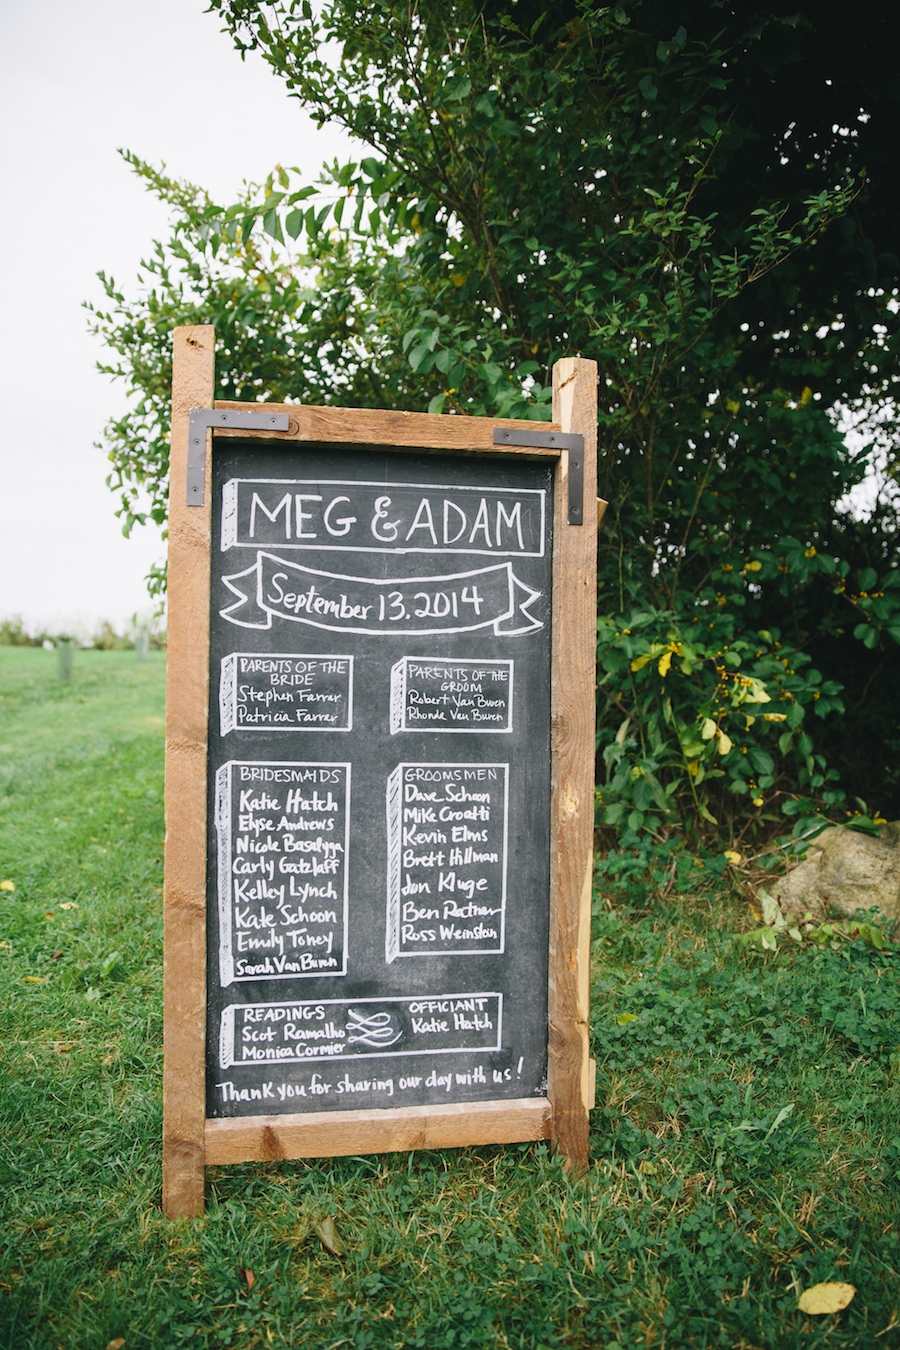 MEG & ADAM
September 13.2014
PARENTS OF THE
BRIDE
Stephen Farrar
Patricia Farrar
PARENTS OF THE
GROOM
Robert Van Buren
Rhonda Van Buren
BRIDESMAIDS
Katie Hatch
Elyse Andrews
Nicole Basalyga
Carly Gatzlaff
Kelley Lynch
Kate Schoon
Emily Toney
Sarah Van Buren
GROOMSMEN
Dave Schoon
Mike Croatti
Kevin Elms
Brett Hillman
Jon Kluge
Ben Ratner
Ross Weinstein
READINGS
Scot Ramalho
Monica Cormier
OFFICIANT
Katie Hatch
Thank you for sharing our day with us!